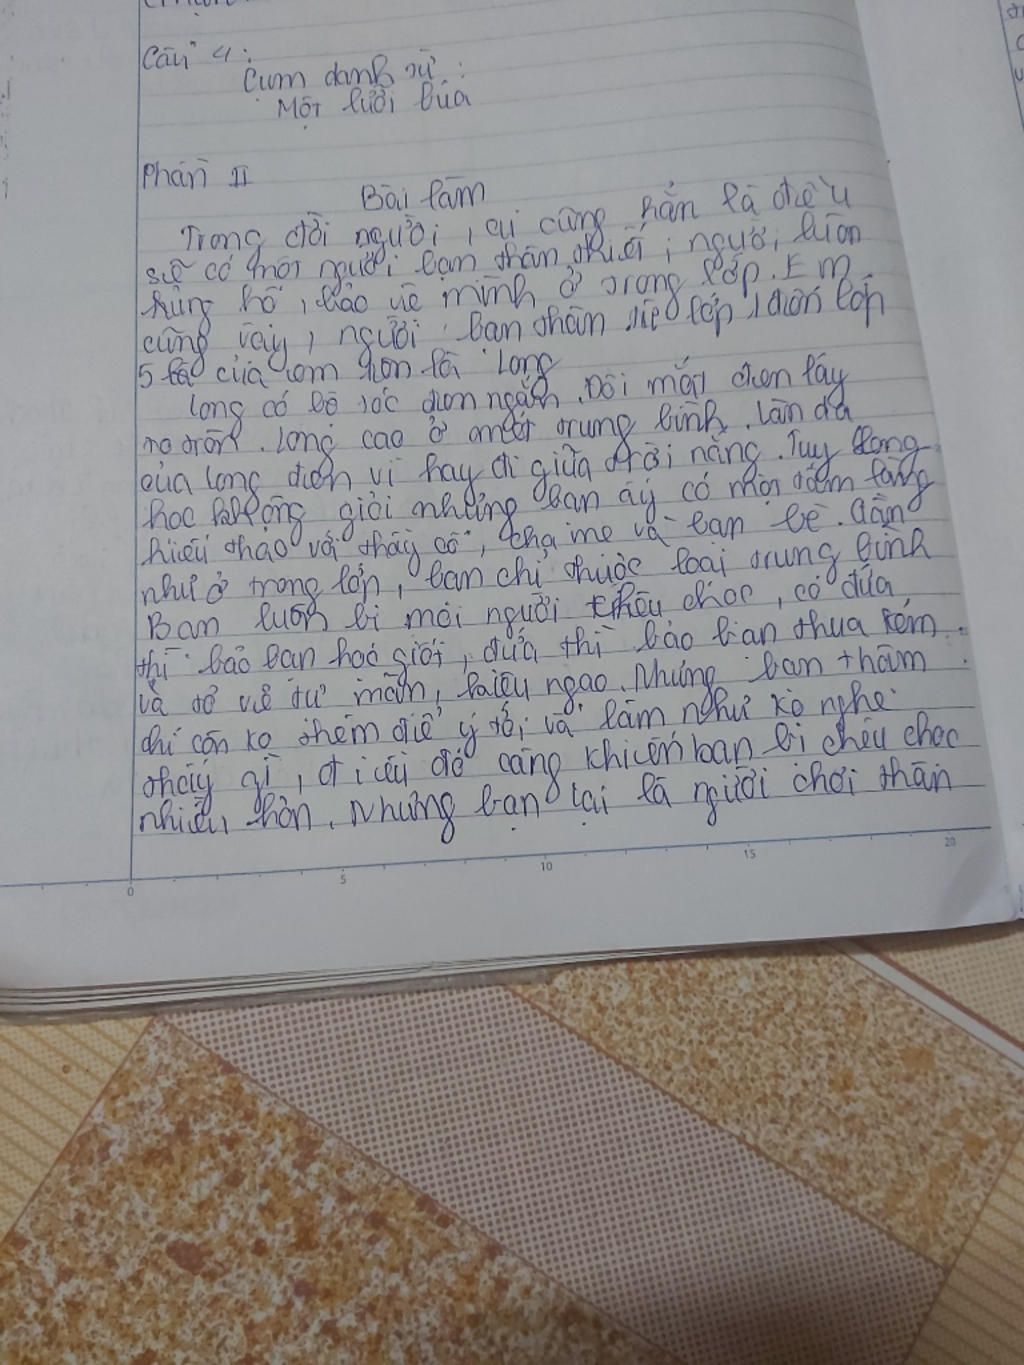 Câu 4:
Cụm danh từ:
Một lưỡi búa
Phần II
Bài làm
Trong đời người, ai cũng hẳn là đều
sẽ có một người bạn thân thiết, người luôn
ủng hộ, bảo vệ mình ở trong lớp. Em
cũng vậy, người bạn thân từ lớp 1 đến lớp
5 của em tên là Long
Long có bộ tóc đen ngắn. Đôi mắt đen láy
to tròn. Long cao ở mức trung bình. Làn da
của Long đen vì hay đi giữa trời nắng. Tuy Long
học không giỏi nhưng bạn ấy có một tấm lòng
hiếu thảo với thầy cô, cha mẹ và bạn bè. Gần
như ở trong lớp, bạn chỉ thuộc loại trung bình
Bạn luôn bị mọi người trêu chọc, có đứa
thì bảo bạn học giỏi, đứa thì bảo bạn thua kém
và tỏ vẻ tự mãn, kiêu ngạo. Nhưng bạn thậm
chí còn ko thèm để ý tới và làm như ko nghe
thấy gì, điều đó càng khiến bạn bị chêu chọc
nhiều hơn. Nhưng bạn lại là người chơi thân
0 5 10 15 20